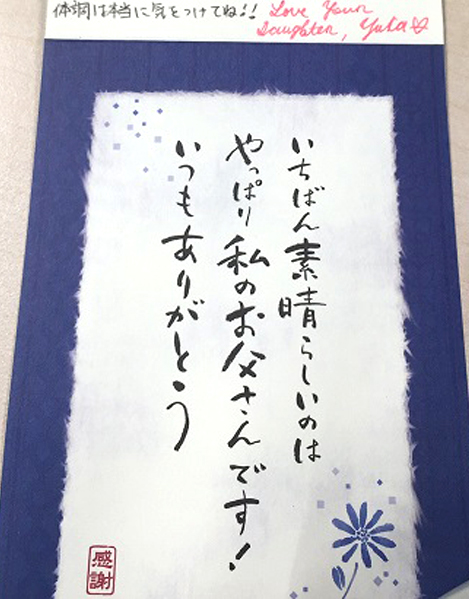 体調は本当に気をつけてね!! Love Your
Daughter, Yuka♡
いちばん素晴らしいのは
やっぱり私のお父さんです!
いつもありがとう
感謝